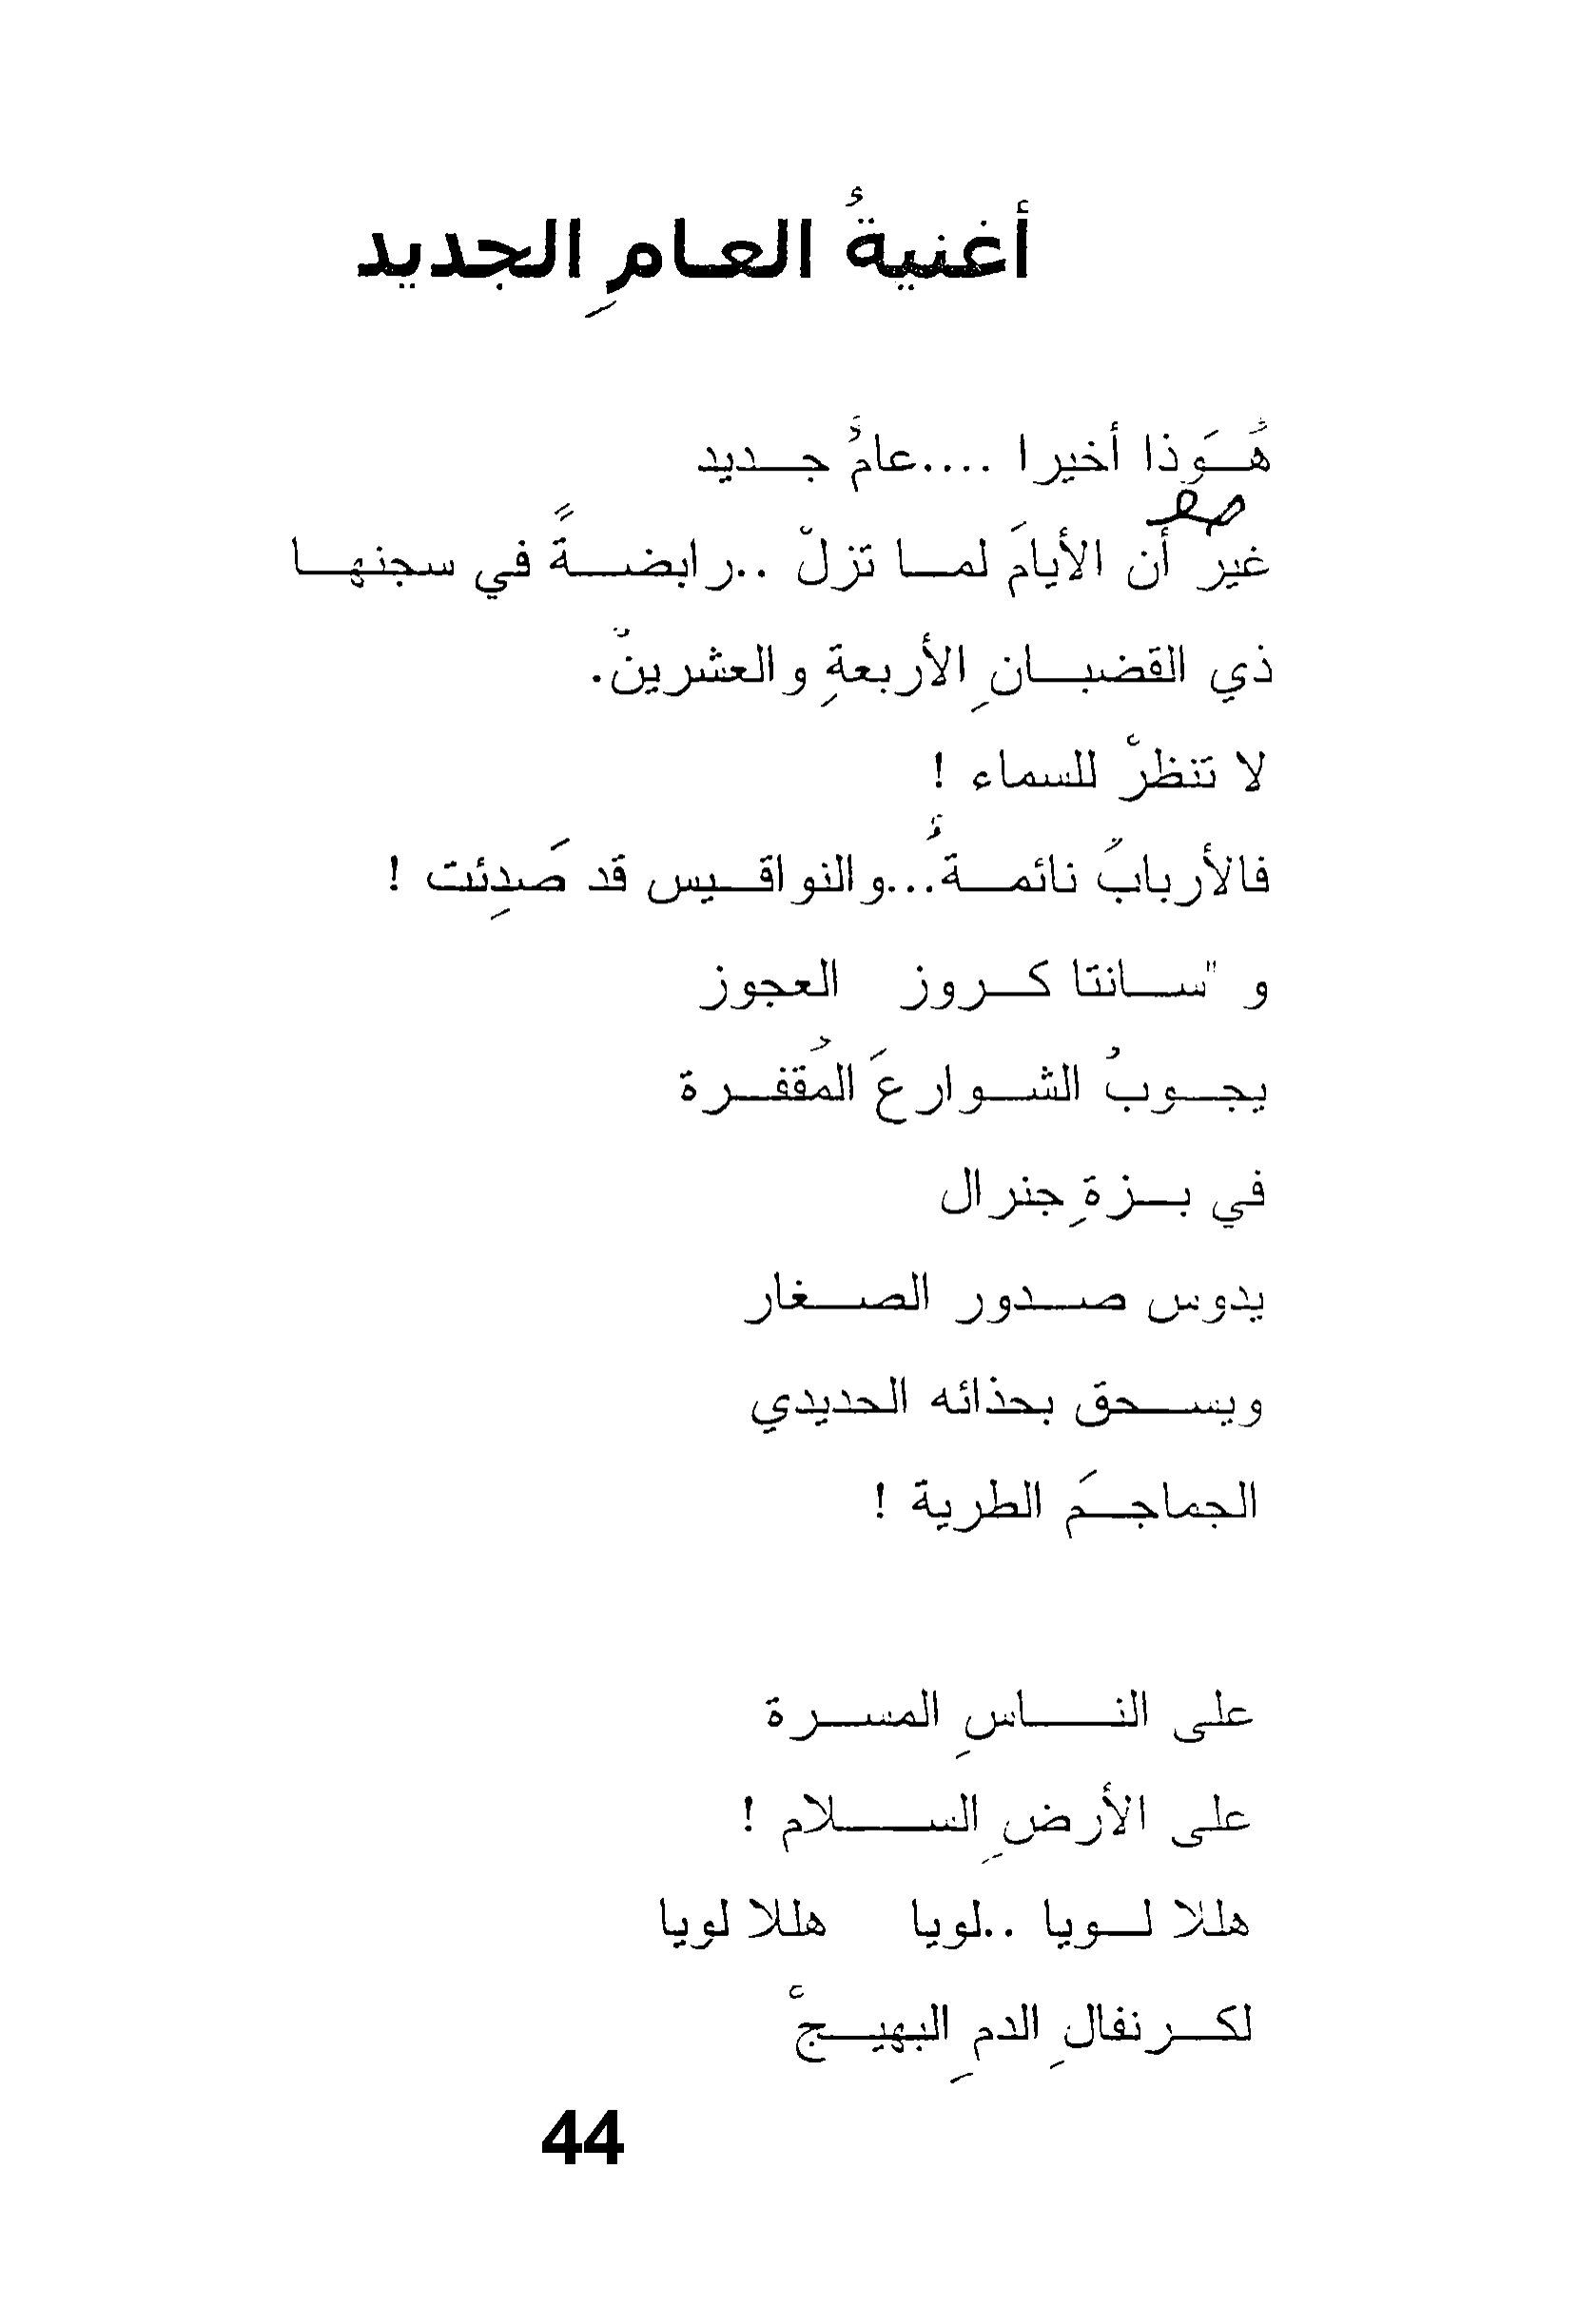 أغنيةُ العـامِ الجديد
هُـوَذا أخيرا ....عامٌ جـديد
غير أن الأيامَ لمـا تزلْ ..رابضـةً في سجنهـا
ذي القضبـانِ الأربعةِ والعشرينْ.
لا تنظرْ للسماء !
فالأربابُ نائمـةٌ...والنواقـيس قد صَدِئت !
و "سـانتا كـروز   العجوز
يجـوبُ الشـوارعَ المُقفـرة
في بـزةِ جنرال
يدوس صـدور الصـغار
ويسـحق بحذائه الحديدي
الجماجـمَ الطرية !
على النـاسِ المسـرة
على الأرضِ السـلام !
هللا لـويا ..لويا   هللا لويا
لكـرنفالِ الدمِ البهيـجْ
44